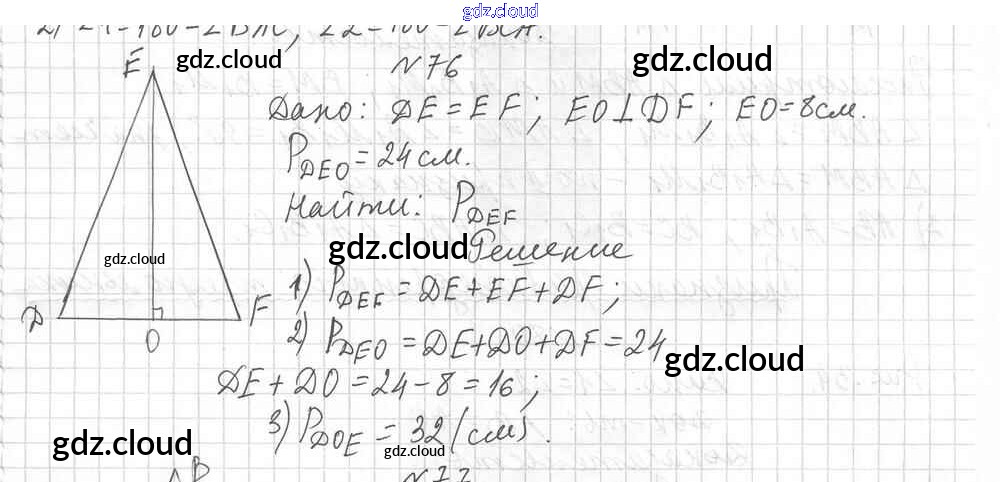 gdz.cloud
2) ∠1=180-∠BAC, ∠2=180-∠BCA.
gdz.cloud
gdz.cloud
E
N76
Дано: DE=EF; EO⊥DF; EO=8см.
P_DEO=24см.
Найти: P_DEF
gdz.cloud
Решение
gdz.cloud
1) P_DEF=DE+EF+DF;
D
F
O
2) P_DEO=DE+DO+DF=24
gdz.cloud
DE+DO=24-8=16;
3) P_DOE=32(см).
gdz.cloud
gdz.cloud
B
N77